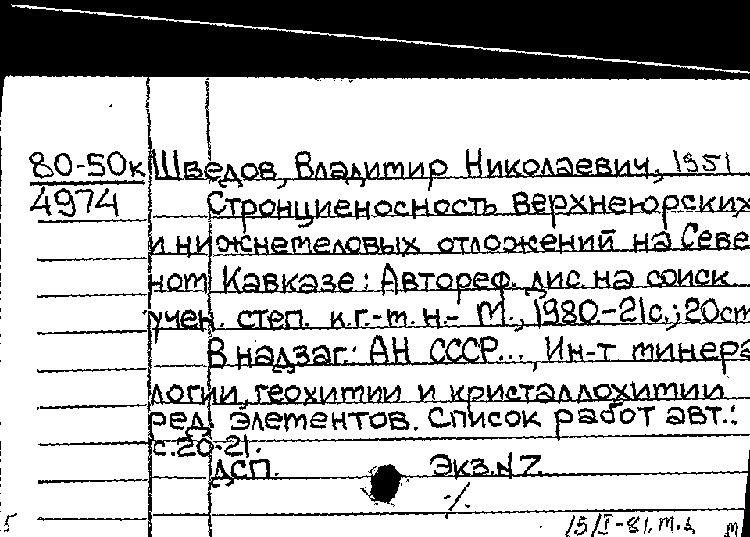 80-50к Шведов, Владимир Николаевич, 1951
4974 Стронциеносность верхнеюрских
и нижнемеловых отложений на Севе
ном Кавказе: Автореф. дис. на соиск
учен. степ. к.г.-м.н.- М., 1980.-21с.; 20см
В надзаг.: АН СССР..., Ин-т минера
логии, геохимии и кристаллохимии
ред. элементов. Список работ авт.:
с.20-21.
ДСП. Экз. N 7.
15/I-81. т.з